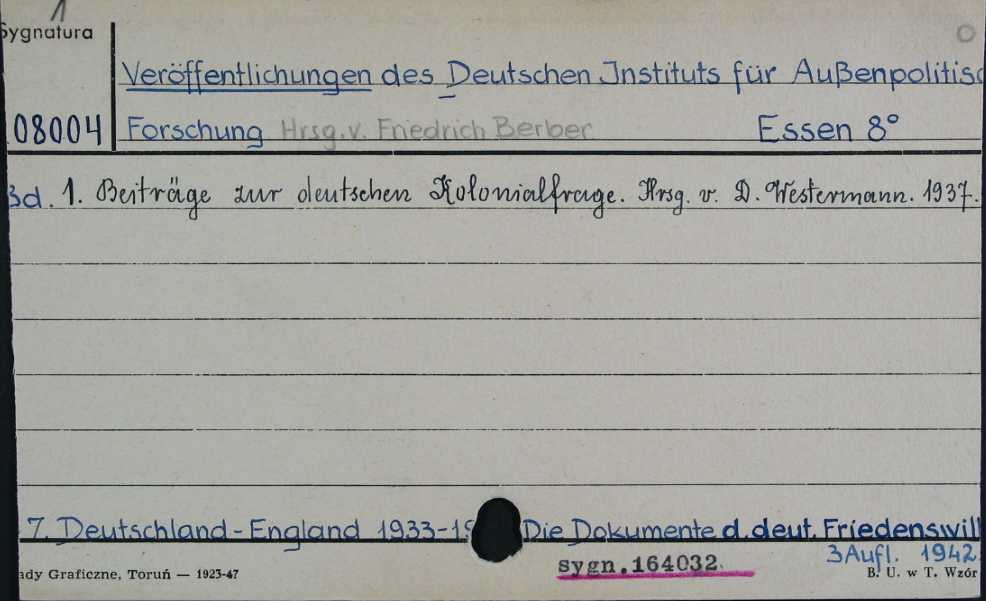 1
Sygnatura
Veröffentlichungen des Deutschen Instituts für Außenpolitisc
08004 Forschung Hrsg.v. Friedrich Berber Essen 8°
Bd. 1. Beiträge zur deutschen Kolonialfrage. Hrsg. v. D. Westermann. 1937.
7. Deutschland-England 1933-19 Die Dokumente d. deut. Friedenswill
3 Aufl. 1942
sygn. 164032.
ady Graficzne, Toruń — 1923-47 B. U. w T. Wzór